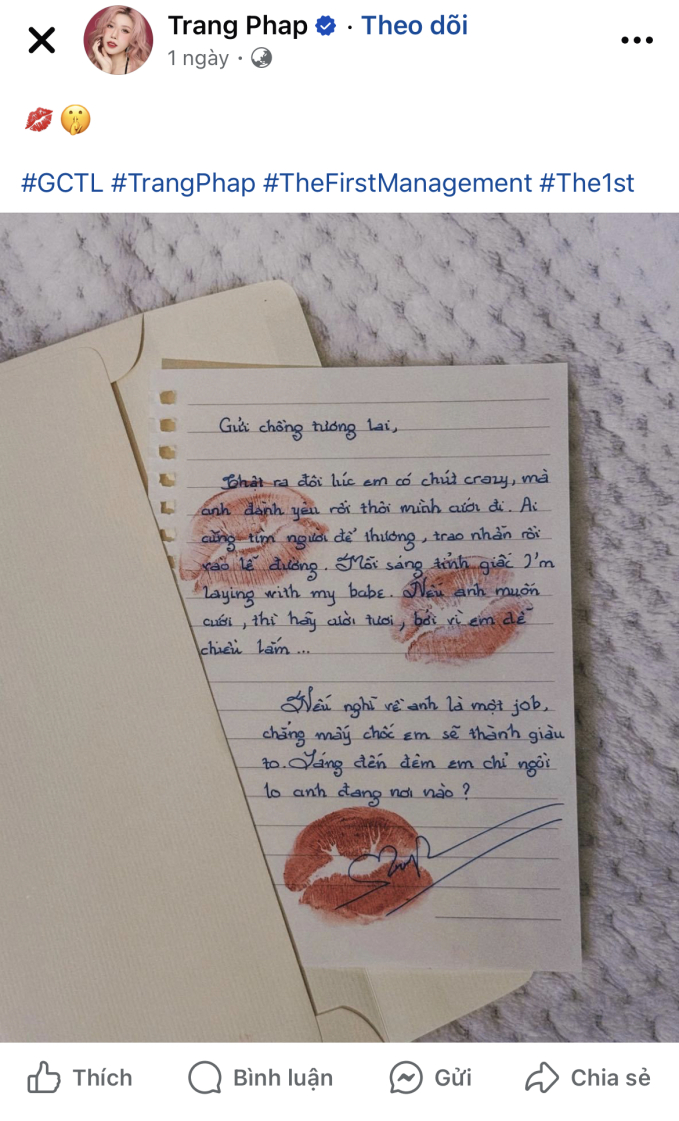 Trang Phap · Theo dõi
1 ngày ·
#GCTL #TrangPhap #TheFirstManagement #The1st
Gửi chồng tương lai,
Thật ra đôi lúc em có chút crazy, mà
anh đành yêu rồi thôi mình cưới đi. Ai
cũng tìm người để thương, trao nhẫn rồi
vào lễ đường. Mỗi sáng tỉnh giấc I'm
laying with my babe. Nếu anh muốn
cưới, thì hãy cười tươi, bởi vì em dễ
chiều lắm ...
Nếu nghĩ về anh là một job,
chẳng mấy chốc em sẽ thành giàu
to. Sáng đến đêm em chỉ ngồi
lo anh đang nơi nào ?
Thích
Bình luận
Gửi
Chia sẻ